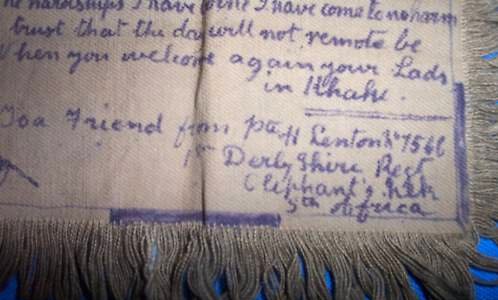 he hardships I have done I have come to no harm
trust that the day will not remote be
When you welcome again your Lads
in Khaki.
To a Friend from Pte H Lenton No 7566
1st Derbyshire Regt
Elephant's Nek
Sth Africa